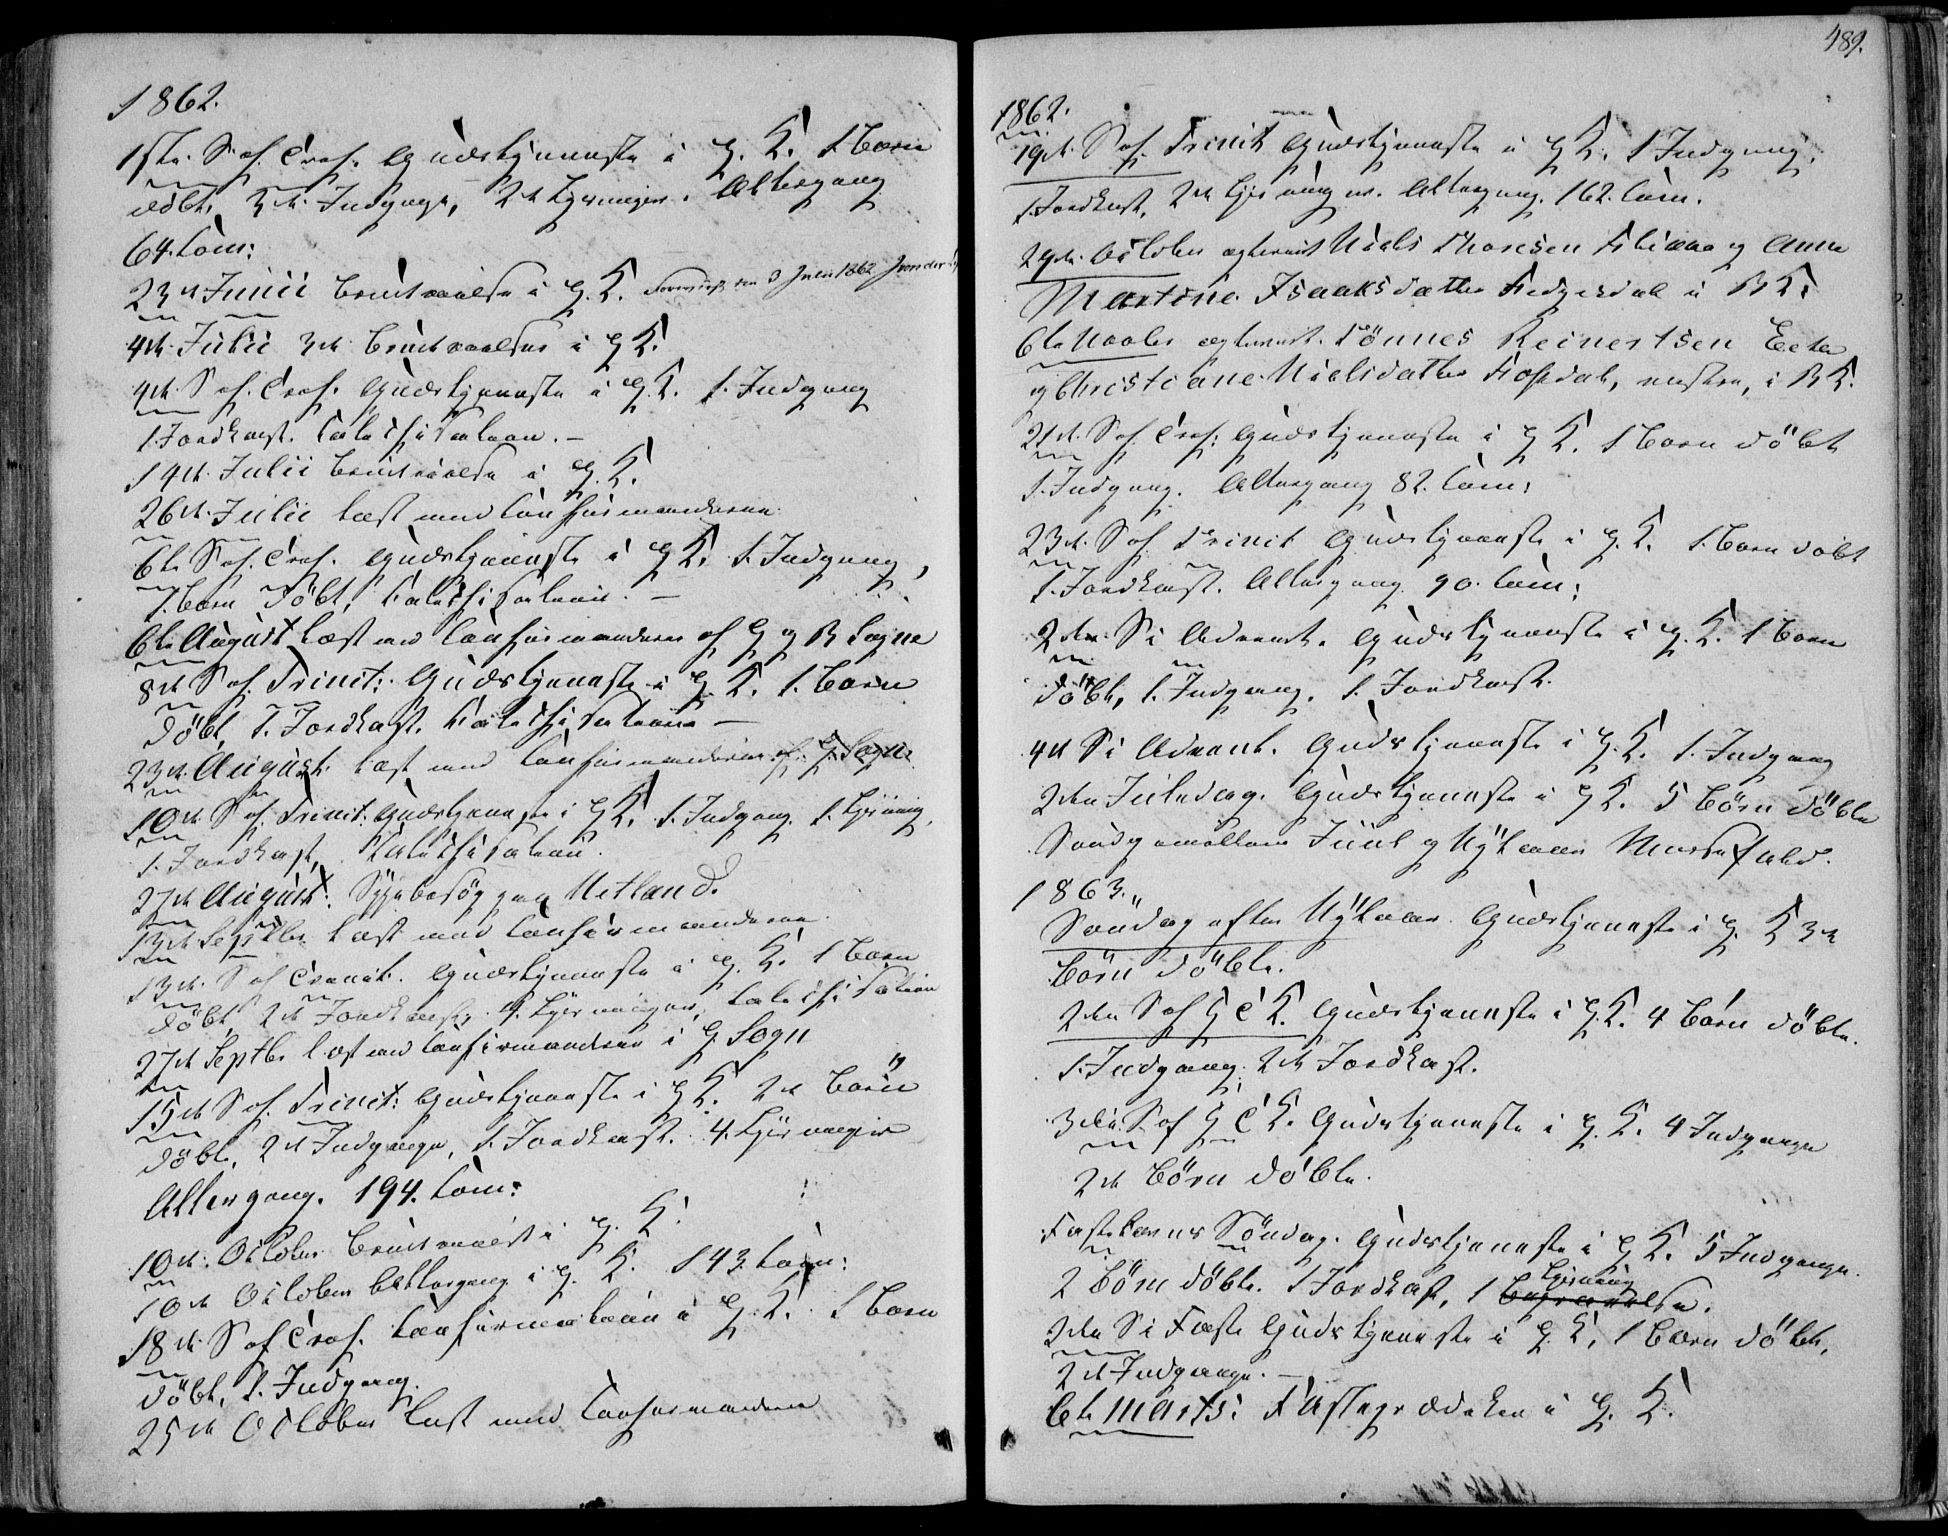 1862.
1ste S. ef. Tref. Gudstjeneste i H. K. 1 Barn
döbt, 3de Indgange, 2de Kjerninger. Altergang
64. Com:
23de Junii Brudevielse i H. K. den 3 Juli 1862
4de Julii 3de Brudevielser i H K.
4de S. ef. Tref. Gudstjeneste i H. K. 1. Indgang
1. Jordkast. Catechisation. –
14de Julii Brudevielse i H. K.
26de Julii læst med Confirmanderne
6te S. ef. Tref. Gudstjeneste i H K. 1. Indgang,
1. Barn döbt, Catechisation. –
6te August læst med Confirmanderne af H og B Sogne
8de S ef. Trinit: Gudstjeneste i H K. 1. Barn
döbt, 1. Jordkast. Catechisation –
23de August læst med Confirmanderne af H. Sogn.
10de S. ef. Trinit: Gudstjeneste i H K. 1. Indgang. 1. Kjerning,
1. Jordkast, Catechisation.
27de August: Sygebesög paa Netland.
13de Septbr. læst med Confirmanderne.
13de S ef Trinit. Gudstjeneste i H. K. 1 Barn
döbt, 2de Jordkaster. 4. Kjerninger, Catechisation
27de Septbr læst med Confirmanderne i H. Sogn
15de S. ef. Trinit: Gudstjeneste i H K. 2de Börn
döbte, 2de Indgange, 1. Jordkast. 4. Kjerninger
Altergang. 194. Com:
10de: October Brudevielse i H. K.
10de October Altergang i H. K. 143. Com:
18de S ef Tref. Confirmation i H. K. 1 Barn
döbt, 1. Indgang.
25de October læst med Confirmanderne
489.
1862.
19de S ef. Trinit Gudstjeneste i H K. 1 Indgang,
1. Jordkast, 2de Kjerninger. Altergang. 162. Com.
29de October ægteviet Niels Thorsen og Anna
Martine Isaaksdatter i B K.
6te Novbr ægteviet Tönnes Reinertsen Eeke
og Christiane Nielsdatter i B K.
21de S ef. Tref: Gudstjeneste i H K. 1 Barn döbt
1. Indgang. Altergang 82. Com:
23de S ef Trinit Gudstjeneste i H. K. 1. Barn döbt
1. Jordkast. Altergang 90. Com:
2den S i Advent. Gudstjeneste i H. K. 1 Barn
döbt, 1. Indgang. 1. Jordkast.
4de S i Advent. Gudstjeneste i H. K. 1. Indgang
2den Juledag. Gudstjeneste i H K. 5 Börn döbte
Söndag mellem Juul og Nytaar Messefald.
1863.
Söndag efter Nytaar. Gudstjeneste i H. K 3de
Börn döbte.
2den S ef H 3 K. Gudstjeneste i H. K. 4 Börn döbte.
1. Indgang. 2de Jordkast.
3die S. ef H 3 K. Gudstjeneste i H. K. 4 Indgange
2de Börn döbte.
Fastelavns Söndag. Gudstjeneste i H K. 5 Indgange.
2 Börn döbte. 1 Jordkast, 1 Kjerning
2den S i Faste Gudstjeneste i H. K. 1 Barn döbt,
2de Indgange. –
6te Marts: Fasteprædiken i H. K.